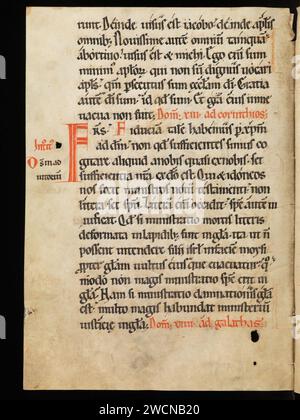 runt. Deinde uisus est iacobo. deinde aplis
omnib;. Nouissime autē omniū tanquā
abortiuo uisus est & michi. Ego enī sum
minim' aplor. qui non sū dignus uocari
apls. qm̄ psecutus sum ecclam di. Gratia
autē di sum id qd sum. Et grā eius in me
uacua non fuit. Dom̄. xiii. ad corinthios.
FRS. Fiduciā talē habemus p xpm̄
ad dm̄. non qd sufficientes simus co
gitare aliquid a nobis quasi ex nobis. sed
sufficientia nra ex do est. Qui & idoneos
nos fecit ministros noui testamenti. non
littera sed spū. littera enī occidit. sps autē ui
uificat. Qd si ministratio mortis litteris
deformata in lapidib;. fuit in gla. ita ut n̄
possent intendere filii isrl in faciē moysi
ppter glam uultus eius que euacuatur. qo
modo non magis ministratio sps erit in
gla. Nam si ministratio damnationis gla
est. multo magis habundat ministeriū
iusticie in gla. Dom̄. xiiii. ad galathas.